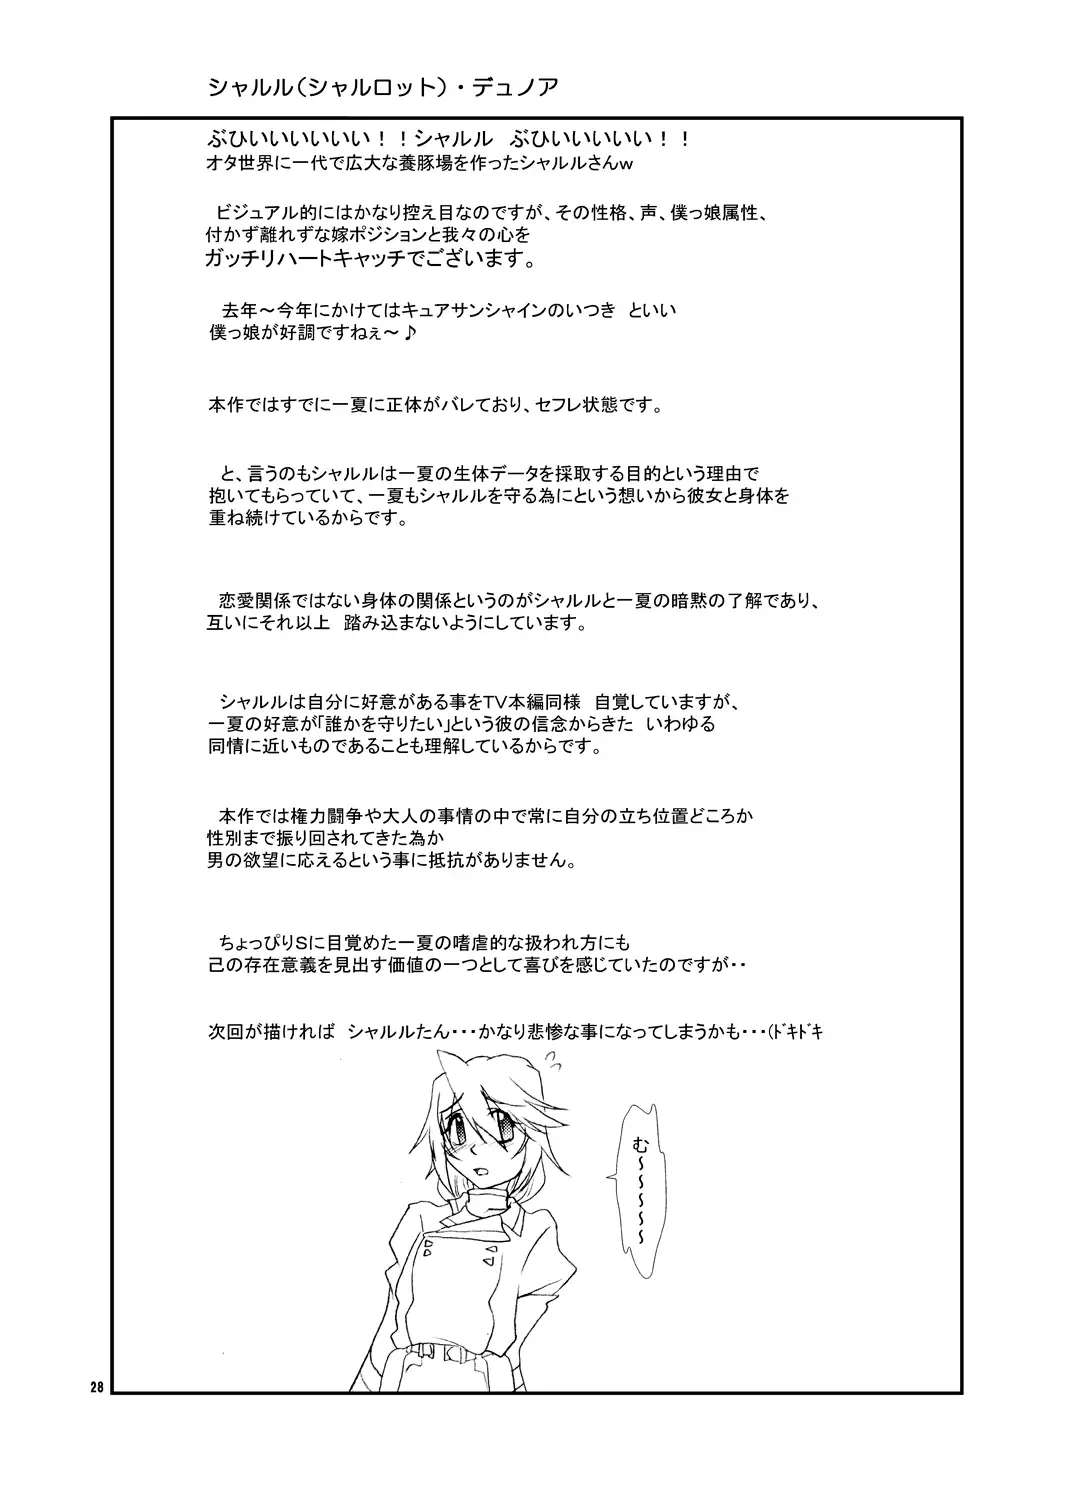 シャルル(シャルロット)・デュノア
ぶひいいいいいい!!シャルル ぶひいいいいい!!
オタ世界に一代で広大な養豚場を作ったシャルルさんw
ビジュアル的にはかなり控え目なのですが、その性格、声、僕っ娘属性、
付かず離れずな嫁ポジションと我々の心を
ガッチリハートキャッチでございます。
去年~今年にかけてはキュアサンシャインのいつき といい
僕っ娘が好調ですねぇ~♪
本作ではすでに一夏に正体がバレており、セフレ状態です。
と、言うのもシャルルは一夏の生体データを採取する目的という理由で
抱いてもらっていて、一夏もシャルルを守る為にという想いから彼女と身体を
重ね続けているからです。
恋愛関係ではない身体の関係というのがシャルルと一夏の暗黙の了解であり、
互いにそれ以上 踏み込まないようにしています。
シャルルは自分に好意がある事をTV本編同様 自覚していますが、
一夏の好意が「誰かを守りたい」という彼の信念からきた いわゆる
同情に近いものであることも理解しているからです。
本作では権力闘争や大人の事情の中で常に自分の立ち位置どころか
性別まで振り回されてきた為か
男の欲望に応えるという事に抵抗がありません。
ちょっぴりSに目覚めた一夏の嗜虐的な扱われ方にも
己の存在意義を見出す価値の一つとして喜びを感じていたのですが・・
次回が描ければ シャルルたん・・・かなり悲惨な事になってしまうかも・・・(ドキドキ
む~~~~~~
28